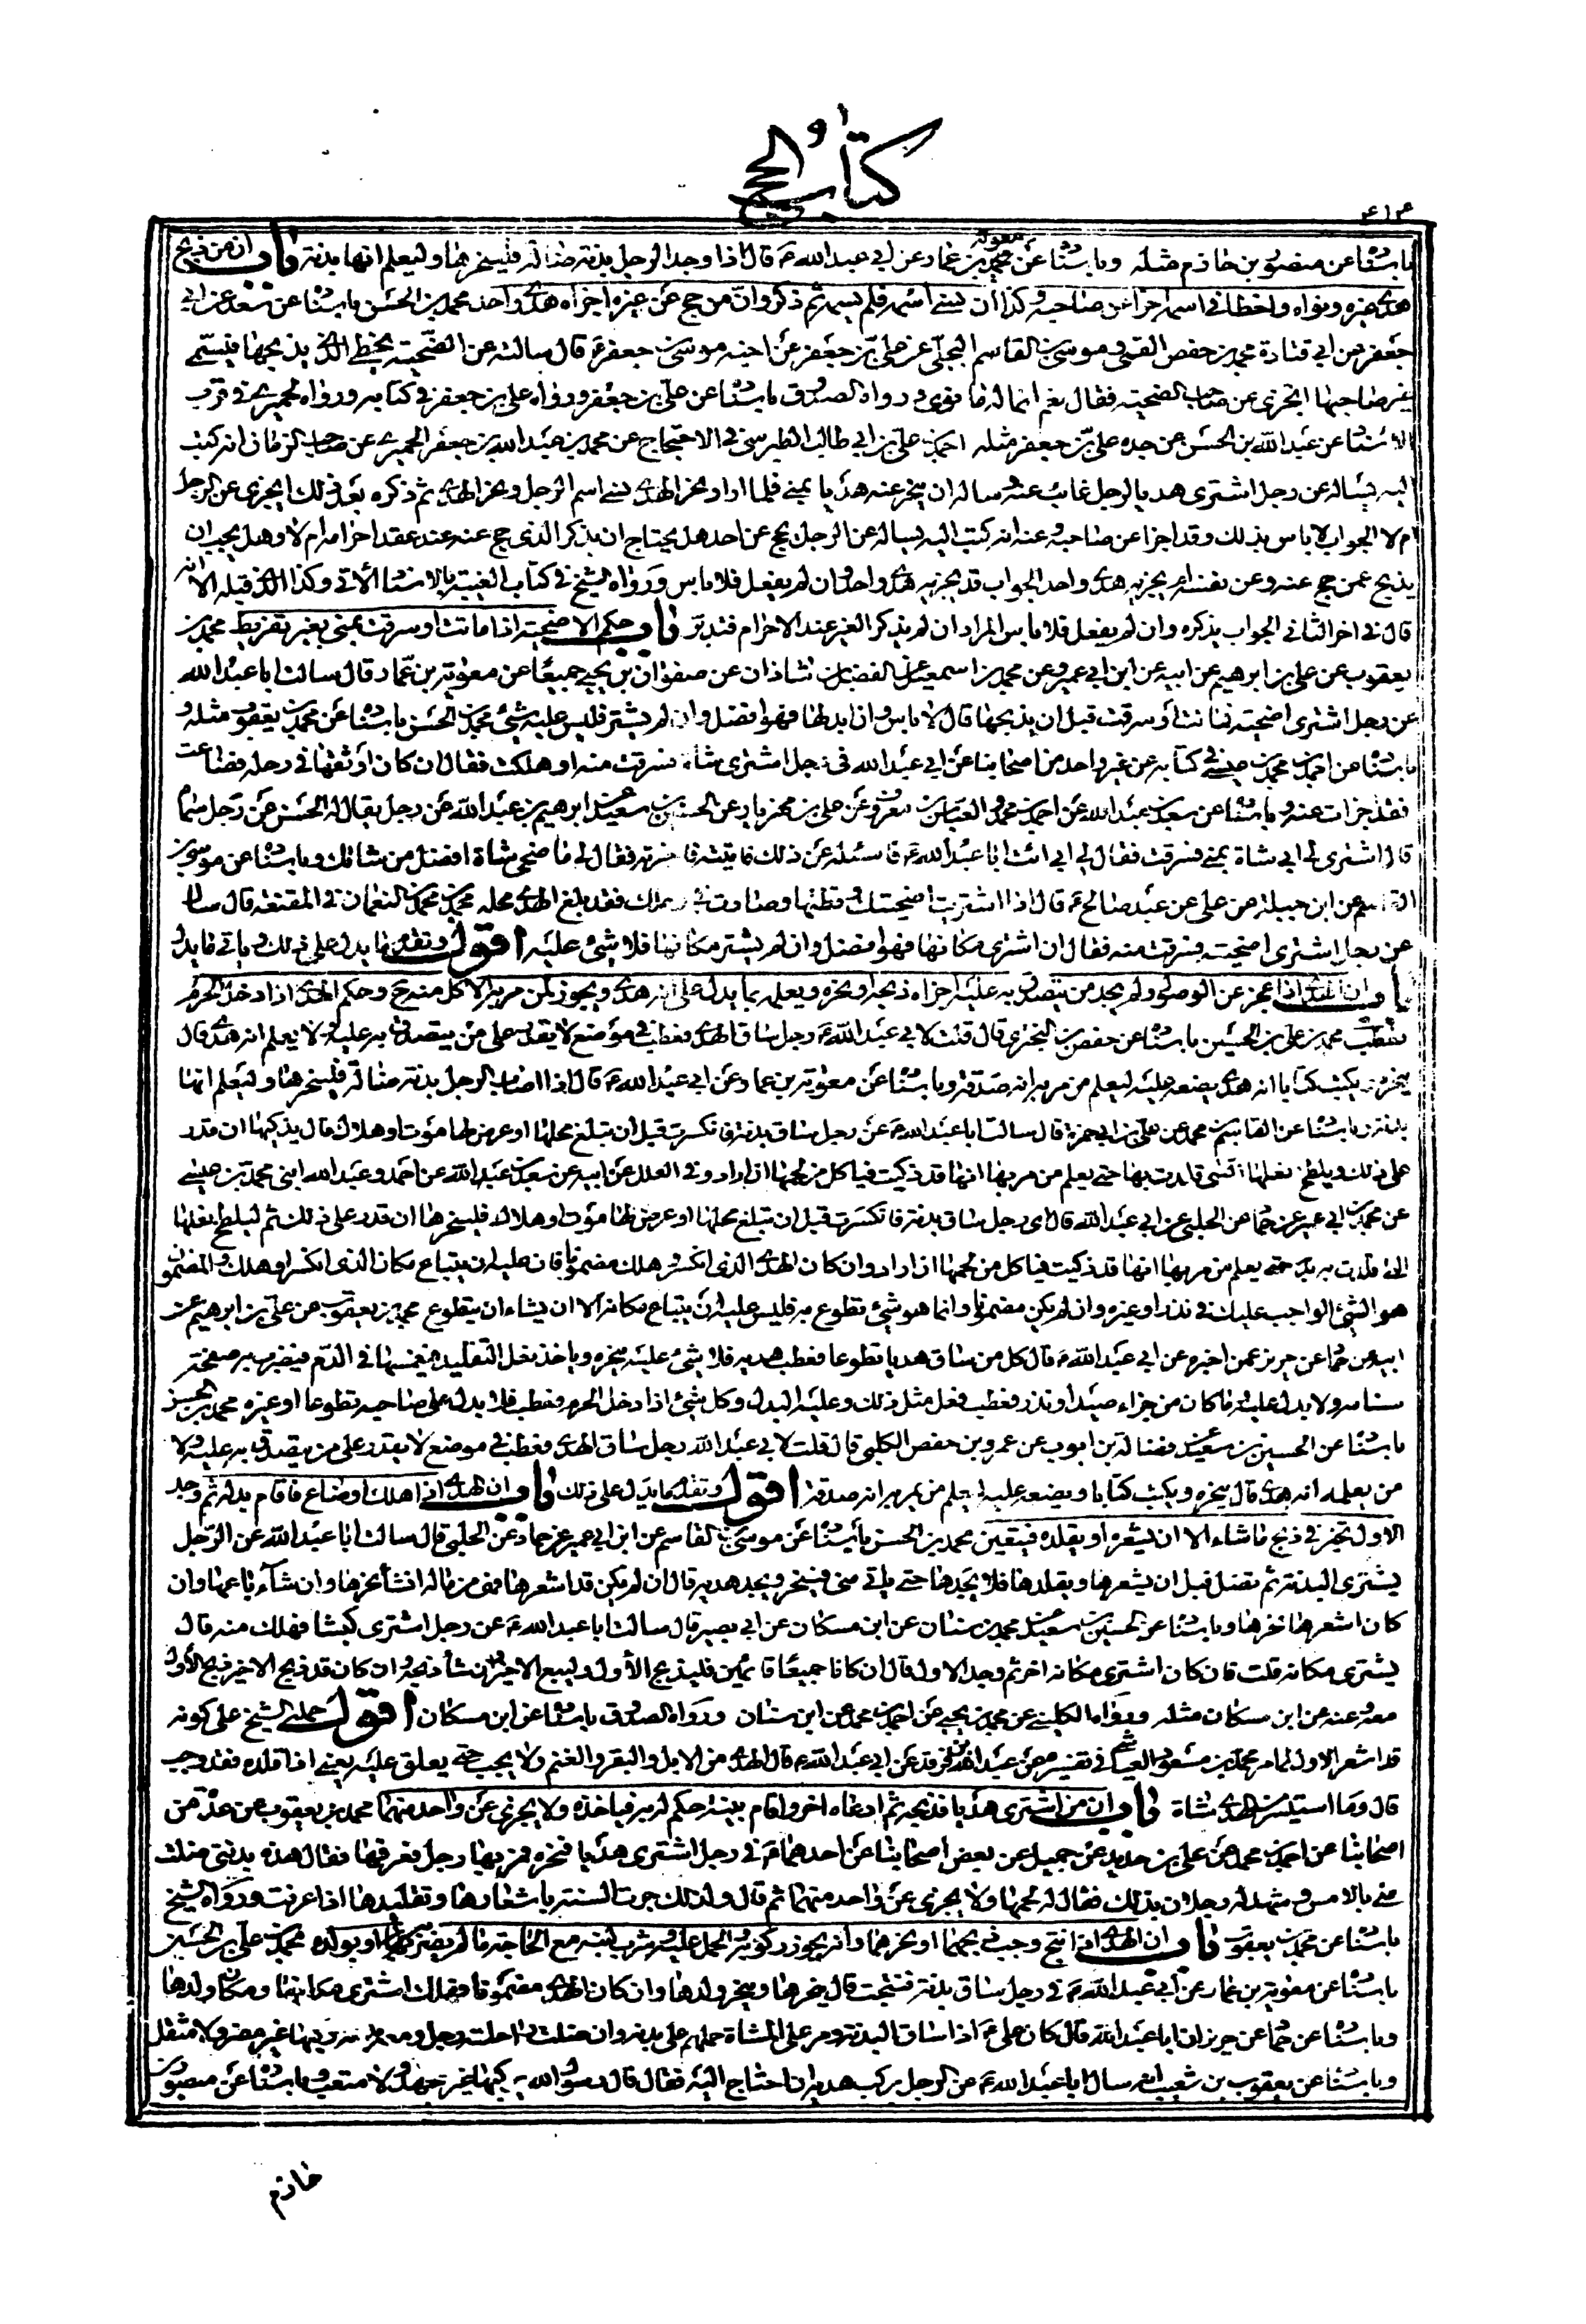 كتاب الحج
٤١٣
باسناده عن منصور بن حازم مثله وباسناده عن معوية بن عمار عن ابي عبد الله ع قال اذا وجد الرجل بدنة ضالة فلينحرها وليعلم انها بدنة باب ان من ذبح
هدي غيره ونواه واخطا في اسمه اجزا عن صاحبه وكذا ان نسي اسمه فلم يسمه ثم ذكر وان من حج عن غيره اجزاه هدي واحد محمد بن الحسن باسناده عن سعد عن ابي
جعفر عن ابي قتادة محمد بن حفص القمي وموسى بن القاسم البجلي عن علي بن جعفر عن اخيه موسى بن جعفر ع قال سالته عن الضحية يخطي الذي يذبحها فيسمي
غير صاحبها اتجزي عن صاحب الضحية فقال نعم انما له ما نوى ورواه الصدوق باسناده عن علي بن جعفر ورواه علي بن جعفر في كتابه ورواه الحميري في قرب
الاسناد عن عبد الله بن الحسن عن جده علي بن جعفر مثله احمد بن علي بن ابي طالب الطبرسي في الاحتجاج عن محمد بن عبد الله بن جعفر الحميري عن صاحب الزمان انه كتب
اليه يسأله عن رجل اشترى هديا لرجل غايب عنه وساله ان ينحر عنه هديا بمنى فلما اراد نحر الهدي نسي اسم الرجل ونحر الهدي ثم ذكره بعد ذلك ايجزي عن الرجل
ام لا الجواب لا باس بذلك وقد اجزا عن صاحبه وعنه انه كتب اليه يساله عن الرجل يحج عن احد هل يحتاج ان يذكر الذي حج عنه عند عقد احرامه ام لا وهل يجب ان
يذبح عمن حج عنه وعن نفسه ام يجزيه هدي واحد الجواب قد يجزيه هدي واحد وان لم يفعل فلا باس ورواه الشيخ في كتاب الغيبة بالاسناد الآتي وكذا الذي قبله الا انه
قال في اخر الثاني الجواب يذكره وان لم يفعل فلا باس المراد ان لم يذكر الغير عند الاحرام فتدبر باب حكم الاضحية اذا ماتت او سرقت بمنى بغير تفريط محمد بن
يعقوب عن علي بن ابرهيم عن ابيه عن ابن ابي عمير وعن محمد بن اسمعيل عن الفضل بن شاذان عن صفوان بن يحيى جميعا عن معوية بن عمار قال سالت ابا عبد الله
عن رجل اشترى اضحية فماتت او سرقت قبل ان يذبحها قال لا باس وان ابدلها فهو افضل وان لم يشتر فليس عليه شيء محمد بن الحسن باسناده عن محمد بن يعقوب مثله و
باسناده عن احمد بن محمد بن عيسى في كتابه عن غير واحد من اصحابنا عن ابي عبد الله في رجل اشترى شاة فسرقت منه او هلكت فقال ان كان اوثقها في رحله فضاعت
فقد اجزات عنه وباسناده عن سعد بن عبد الله عن احمد بن محمد والعباس بن معروف عن علي بن مهزيار عن الحسين بن سعيد عن ابرهيم بن عبد الله عن رجل يقال له الحسن عن رجل سماه
قال اشترى لي ابي شاة بمنى فسرقت فقال لي ابي ائت ابا عبد الله ع فاسئله عن ذلك فاتيته فاخبرته فقال لي ما ضحي بمنى شاة افضل من شاتك وباسناده عن موسى بن
القاسم عن ابن جبلة عن علي عن عبد صالح ع قال اذا اشتريت اضحيتك وقمطتها وصارت في رحلك فقد بلغ الهدي محله محمد بن محمد بن النعمان في المقنعة قال سئل
عن رجل اشترى اضحية فسرقت منه فقال ان اشترى مكانها فهو افضل وان لم يشتر مكانها فلا شيء عليه اقول وتقدم ما يدل على ذلك وياتي ما يدل
باب ان الهدي اذا عجز عن الوصول ولم يجد من يتصدق به عليه اجزاه ذبحه او نحره ويعلمه بما يدل على انه هدي ويجوز لمن مر به الاكل منه وحكم الهدي اذا دخل الحرم
فعطب محمد بن علي بن الحسين باسناده عن حفص بن البختري قال قلت لابي عبد الله ع رجل ساق الهدي فعطب في موضع لا يقدر على من يتصدق به عليه ولا يعلم انه هدي قال
ينحره ويكتب كتابا انه هدي يضعه عليه ليعلم من مر به انه صدقة وباسناده عن معوية بن عمار عن ابي عبد الله ع قال اذا اصاب الرجل بدنة ضالة فلينحرها وليعلم انها
بدنة وباسناده عن القاسم بن محمد عن علي بن ابي حمزة قال سالت ابا عبد الله ع عن رجل ساق بدنة فانكسرت قبل ان تبلغ محلها او عرض لها موت او هلاك قال يذكيها ان قدر
على ذلك ويلطخ نعلها التي قلدت بها حتى يعلم من مر بها انها قد ذكيت فياكل من لحمها ان اراد وفي العلل عن ابيه عن سعد بن عبد الله عن احمد وعبد الله ابني محمد بن عيسى
عن محمد بن ابي عمير عن حماد عن الحلبي عن ابي عبد الله قال اي رجل ساق بدنة فانكسرت قبل ان تبلغ محلها او عرض لها موت او هلاك فلينحرها ان قدر على ذلك ثم ليلطخ نعلها
التي قلدت به بدم حتى يعلم من مر بها انها قد ذكيت فياكل من لحمها ان اراد وان كان الهدي الذي انكسر وهلك مضمونا فان عليه ان يبتاع مكان الذي انكسر او هلك والمضمون
هو الشيء الواجب عليك في نذر او غيره وان لم يكن مضمونا وانما هو شيء تطوع به فليس عليه ان يبتاع مكانه الا ان يشاء ان يتطوع محمد بن يعقوب عن علي بن ابرهيم عن
ابيه عن حماد عن حريز عمن اخبره عن ابي عبد الله ع قال كل من ساق هديا تطوعا فعطب هديه فلا شيء عليه ينحره وياخذ نعل التقليد فيغمسها في الدم فيضرب به صفحة
سنامه ولا بدل عليه وما كان من جزاء صيد او نذر فعطب فعل مثل ذلك وعليه البدل وكل شيء اذا دخل الحرم فعطب فلا بدل على صاحبه تطوعا او غيره محمد بن الحسن
باسناده عن الحسين بن سعيد عن فضالة بن ايوب عن عمرو بن حفص الكلبي قال قلت لابي عبد الله رجل ساق الهدي فعطب في موضع لا يقدر على من يتصدق به عليه ولا
من يعلمه انه هدي قال ينحره ويكتب كتابا ويضعه عليه ليعلم من يمر به انه صدقة اقول وتقدم ما يدل على ذلك باب ان الهدي اذا هلك او ضاع فاقام بدله ثم وجد
الاول تخير في ذبح ما شاء الا ان يشعره او يقلده فيتعين محمد بن الحسن باسناده عن موسى بن القاسم عن ابن ابي عمير عن حماد عن الحلبي قال سالت ابا عبد الله عن الرجل
يشتري البدنة ثم تضل قبل ان يشعرها ويقلدها فلا يجدها حتى ياتي منى فينحر ويجد هديه قال ان لم يكن قد اشعرها فهي من ماله ان شاء نحرها وان شاء باعها وان
كان اشعرها نحرها وباسناده عن الحسين بن سعيد عن محمد بن سنان عن ابن مسكان عن ابي بصير قال سالت ابا عبد الله ع عن رجل اشترى كبشا فهلك منه قال
يشتري مكانه قلت فان كان اشترى مكانه اخر ثم وجد الاول قال ان كانا جميعا قائمين فليذبح الأول وليبع الاخير وان شاء ذبحه وان كان قد ذبح الاخير ذبح الأول
معه وعنه عن ابن مسكان مثله ورواه الكليني عن محمد بن يحيى عن احمد بن محمد عن ابن سنان ورواه الصدوق باسناده عن ابن مسكان اقول حمله الشيخ على كونه
قد اشعر الاول لما مر محمد بن مسعود العياشي في تفسيره عن عبد الله بن فرقد عن ابي عبد الله ع قال الهدي من الابل والبقر والغنم ولا يجب حتى يعلق عليه يعني اذا قلده فقد وجب
قال وما استيسر من الهدي شاة باب ان من اشترى هديا فذبحه ثم ادعاه اخر واقام بينة حكم له به فياخذه ولا يجزي عن واحد منهما محمد بن يعقوب عن عدة من
اصحابنا عن احمد بن محمد عن علي بن حديد عن جميل عن بعض اصحابنا عن احدهما ع في رجل اشترى هديا فنحره فمر بها رجل فعرفها فقال هذه بدنتي ضلت
مني بالامس وشهد له رجلان بذلك فقال له لحمها ولا يجزي عن واحد منهما ثم قال ولذلك جرت السنة باشعارها وتقليدها اذا عرفت ورواه الشيخ
باسناده عن محمد بن يعقوب باب ان الهدي اذا نتج وجب ذبحهما او نحرهما وانه يجوز ركوبه والحمل عليه وشرب لبنه مع الحاجة ما لم يضر به او بولده محمد بن علي بن الحسين
باسناده عن معوية بن عمار عن ابي عبد الله ع في رجل ساق بدنة فنتجت قال ينحرها وينحر ولدها وان كان الهدي مضمونا فهلك اشترى مكانها ومكان ولدها
وباسناده عن حماد عن حريز ان ابا عبد الله قال كان علي ع اذا ساق البدنة ومر على المشاة حملهم على بدنه وان ضلت راحلة رجل ومعه بدنة ركبها غير مضر ولا مثقل
وباسناده عن يعقوب بن شعيب انه سال ابا عبد الله ع عن الرجل يركب هديه ان احتاج اليه فقال قال رسول الله يركبها غير مجهد ولا متعب وباسناده عن منصور بن
حازم